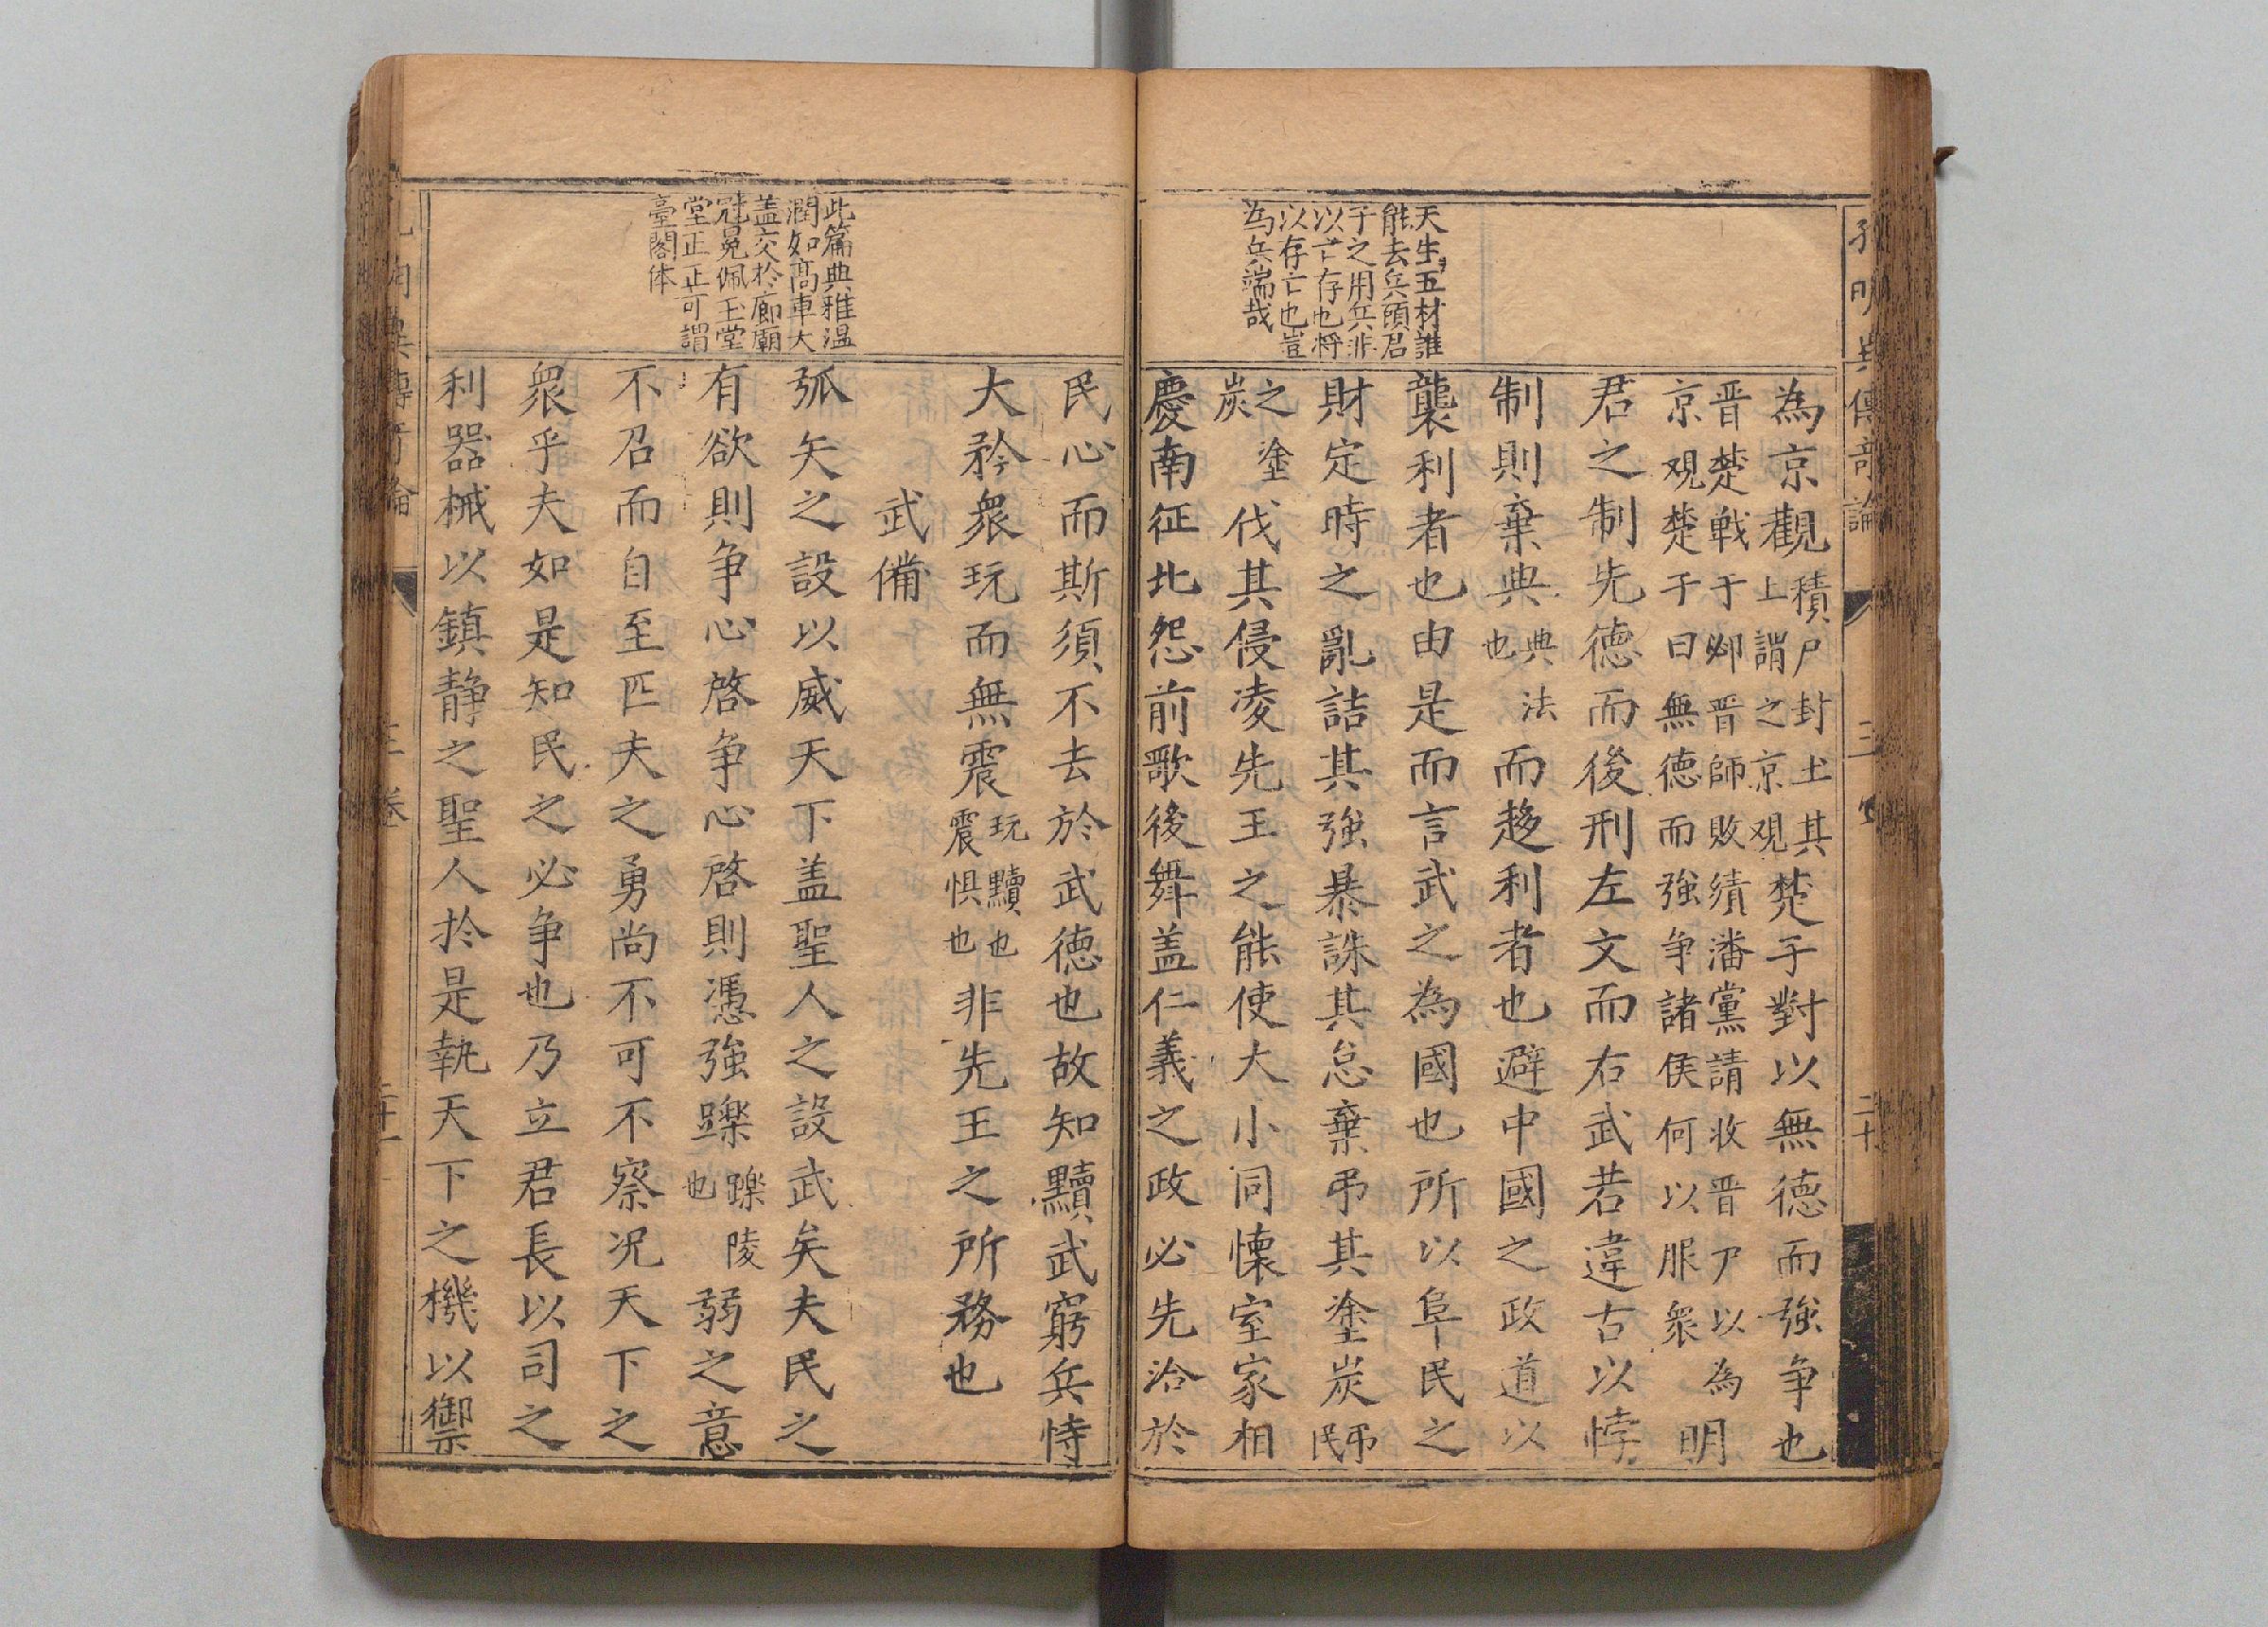 孔明兵傳奇論
二十
天生五材誰
能去兵頋君
子之用兵非
以亡存也將
以存亡也豈
為兵端哉
為京觀積尸封土其上謂之京观楚子對以無德而強争也
晋楚戦于邲晋師敗績潘黨請收晋尸以為
京观楚子曰無德而強争諸侯何以服衆明
君之制先德而後刑左文而右武若違古以悖
制則棄典典法也而趍利者也避中國之政道以
襲利者也由是而言武之為國也所以阜民之
財定時之亂詰其強暴誅其怠棄弔其塗炭弔民
之塗炭伐其侵凌先王之能使大小同懷室家相
慶南征北怨前歌後舞盖仁義之政必先洽於
此篇典雅温
潤如高車大
盖交於廊廟
冠冕佩玉堂
堂正正可謂
臺閣体
民心而斯須不去於武德也故知黷武窮兵恃
大矜衆玩而無震玩黷也震惧也非先王之所務也
武備
弧矢之設以威天下盖聖人之設武矣夫民之
有欲則争心啓争心啓則憑強躒躒陵也弱之意
不召而自至匹夫之勇尚不可不察况天下之
衆乎夫如是知民之必争也乃立君長以司之
利器械以鎮静之聖人扵是執天下之機以禦